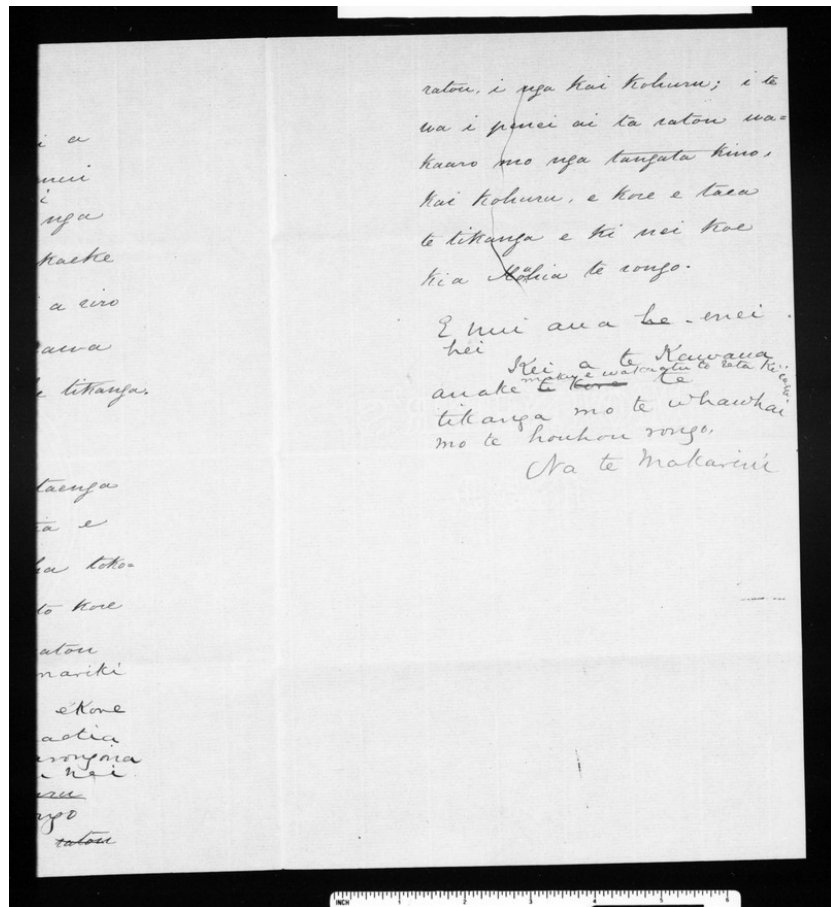 i a
nga
kaeke
a riro
tikanga.
taenga
e
toko=
to kore
ratou
mariki
ekore
rongona
nei
ratou
ratou, i nga kai kohuru; i te
wa i penei ai ta ratou wa=
kaaro mo nga tangata kino,
kai kohuru, e kore e taea
te tikanga e ki nei koe
kia mahia te rongo.
E mui ana he enei
hei
Kei a te Kawana
maku e wakaatu to reta ki a ia
anake te kore te
tikanga mo te whawhai
mo te houhou rongo.
Na te Makarini
INCH 1 2 3 4 5 6